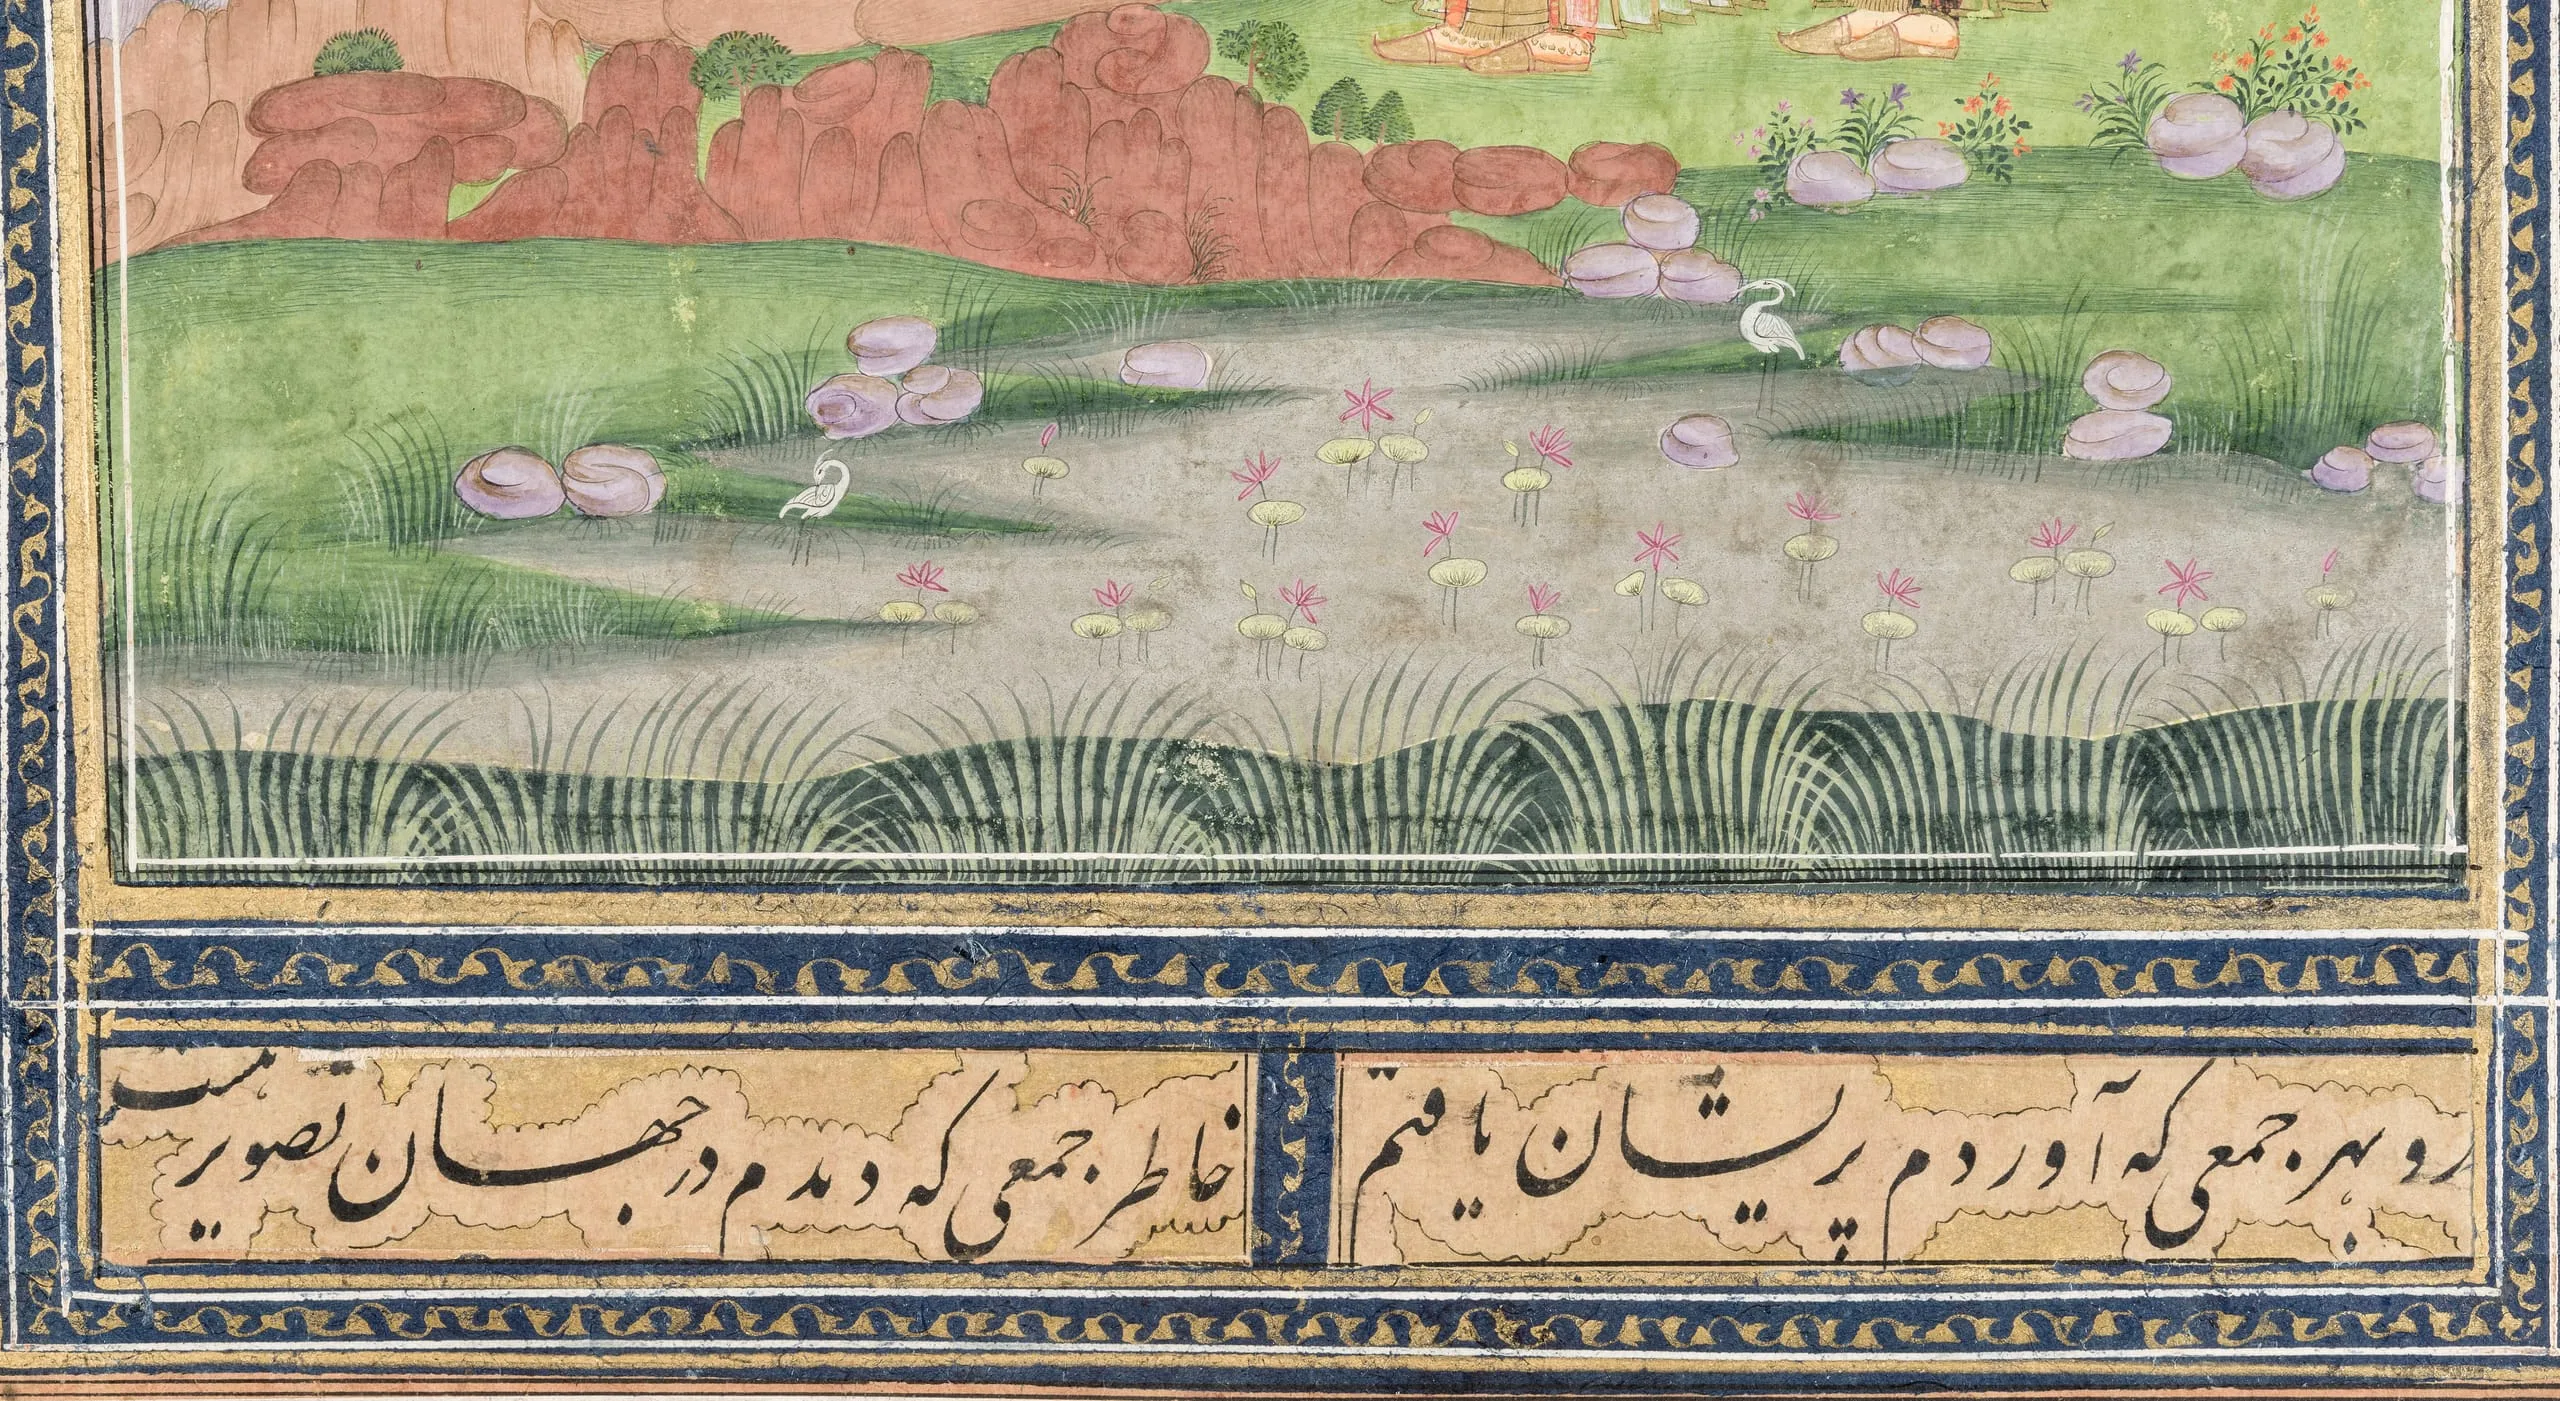 رو بهر جمعی که آوردم پریشان یافتم
خاطر جمعی که دیدم در جهان تصویر هست